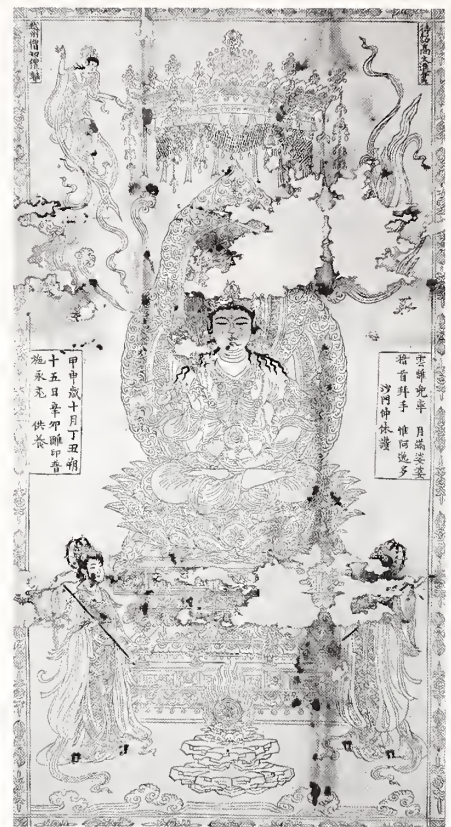 待詔高文進畫
越州僧知禮雕
雲離兜率　月滿娑婆
稽首拜手　惟阿逸多
沙門仲休讚
甲申歲十月丁丑朔
十五日辛卯雕印普
施永充　供養